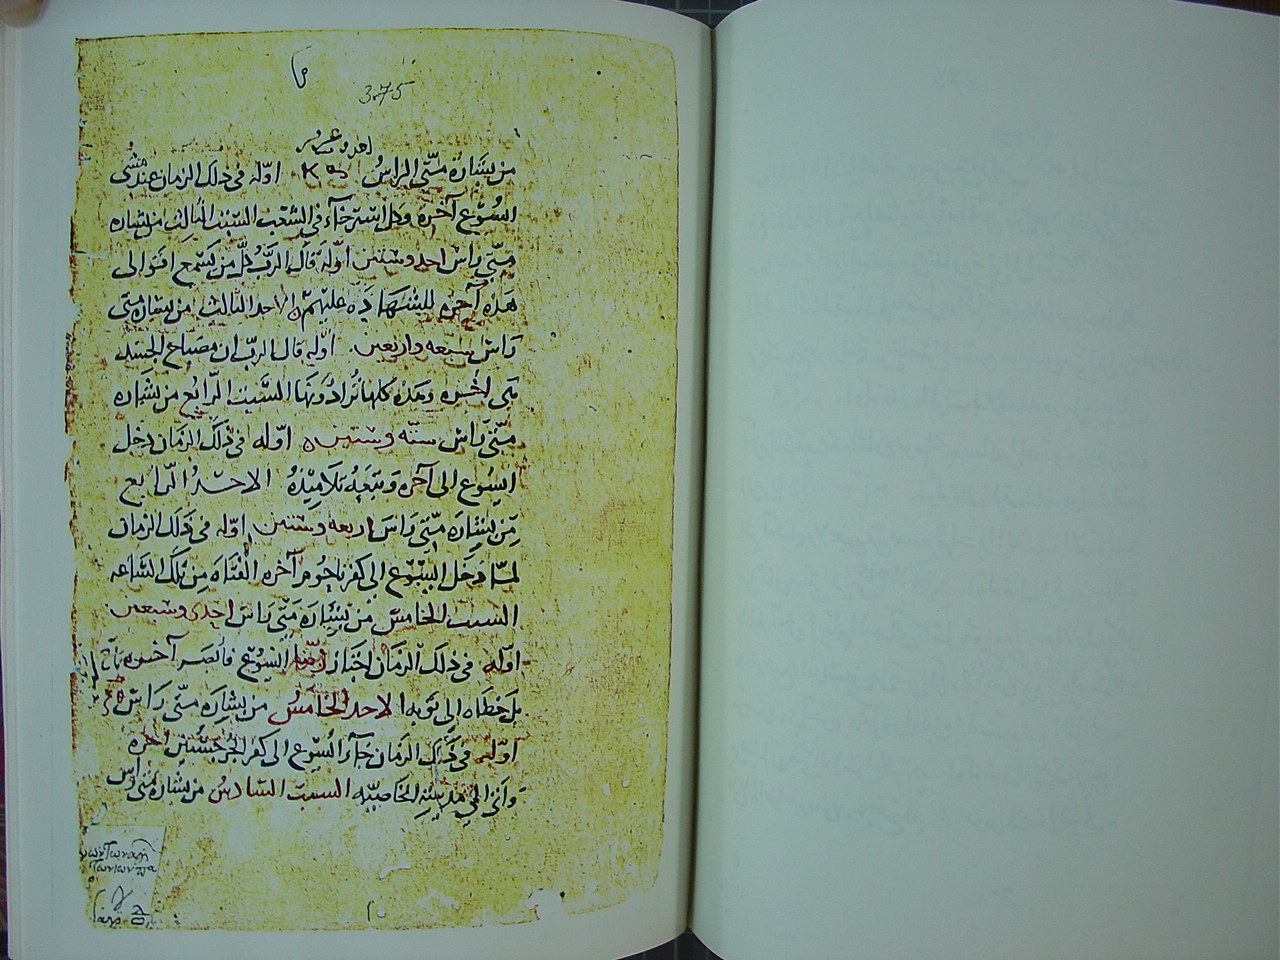 375
احد وعشرين
من بشارة متّى الراسُ κα اوّله في ذلك الزمان عند مشى
اليسُوع آخره وكل استرخآء في الشعب السّبت الثالث من بشاره
متّى رَاسْ احد وستين اوّله قَالَ الرَّبُ كُلّ مَن يَسْمَع اقوالى
هَذه آخره للشهَادَه عليهم الاحد الثالث من بشاره متى
رَاسْ سبعه واربعين اوّله قال الربّ ان مصباح الجسَد
متى اخره وهذه كلها تُزادُونَها السَّبت الرّابع من بشَاره
متّى رَاسْ ستّه وستين اوّله في ذَلكَ الزمَان دخل
ايسُوع الى آخره وتبَعَهُ تلاميذهُ الاحدُ الرّابع
مِن بشاره متّى رَاسْ اربعه وستين اوّله في ذَلك الزمان
لمّا دَخل ايسُوع الى كفرناحُوم آخره الفتَاه مِن تلكَ السَّاعه
السبت الخامسْ من بشَارَه متّى رَاسْ احدى وسبعين
اوّله في ذلكَ الزمَان اجتاز ربّنا ايسُوع فابْصَر آخره
بل خطاه الى توبه الاحد الخَامسُ من بشارَه متّى رَاسْ
اوّله في ذَلك الزمَان جَآء ايسُوع الى كفر الجُرجسَيّين اخره
وَاتى الى مَدينتِهِ الخَاصيّه السبت السَّادسُ من بشاره متى رَاس